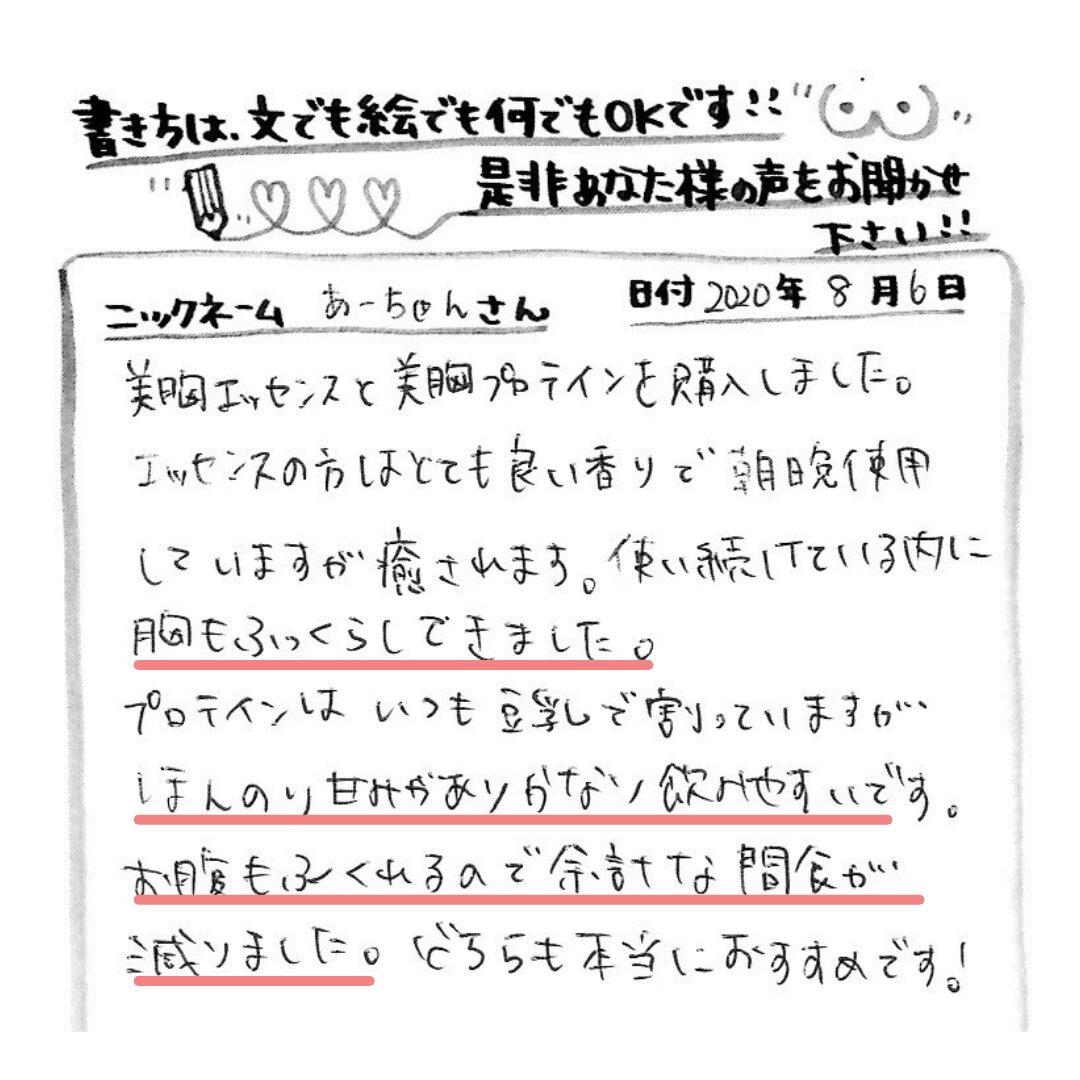 書きちは、文でも絵でも何でもOKです!!
是非あなた様の声をお聞かせ
下さい!!
ニックネーム あーちゃんさん
日付 2020年 8月6日
美胸エッセンスと美胸プロテインを購入しました。
エッセンスの方はとても良い香りで朝晩使用
していますが癒されます。使い続けている内に
胸もふっくらしてきました。
プロテインは いつも豆乳で割っていますが
ほんのり甘みがありかなり飲みやすいです。
お腹もふくれるので余計な間食が
減りました。どちらも本当におすすめです!